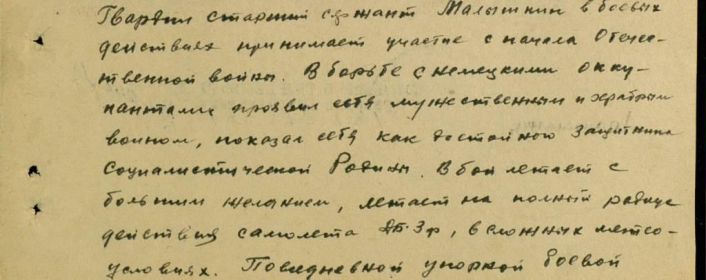 Гвардии старший сержант Малышкин в боевых
действиях принимает участие с начала Отече-
ственной войны. В борьбе с немецкими окку-
пантами проявил себя мужественным и храбрым
воином, показал себя как достойного защитника
социалистической Родины. В бой летает с
большим желанием, летает на полный радиус
действия самолета ДБ-3ф, в сложных метео-
условиях. Повседневной упоркой боевой